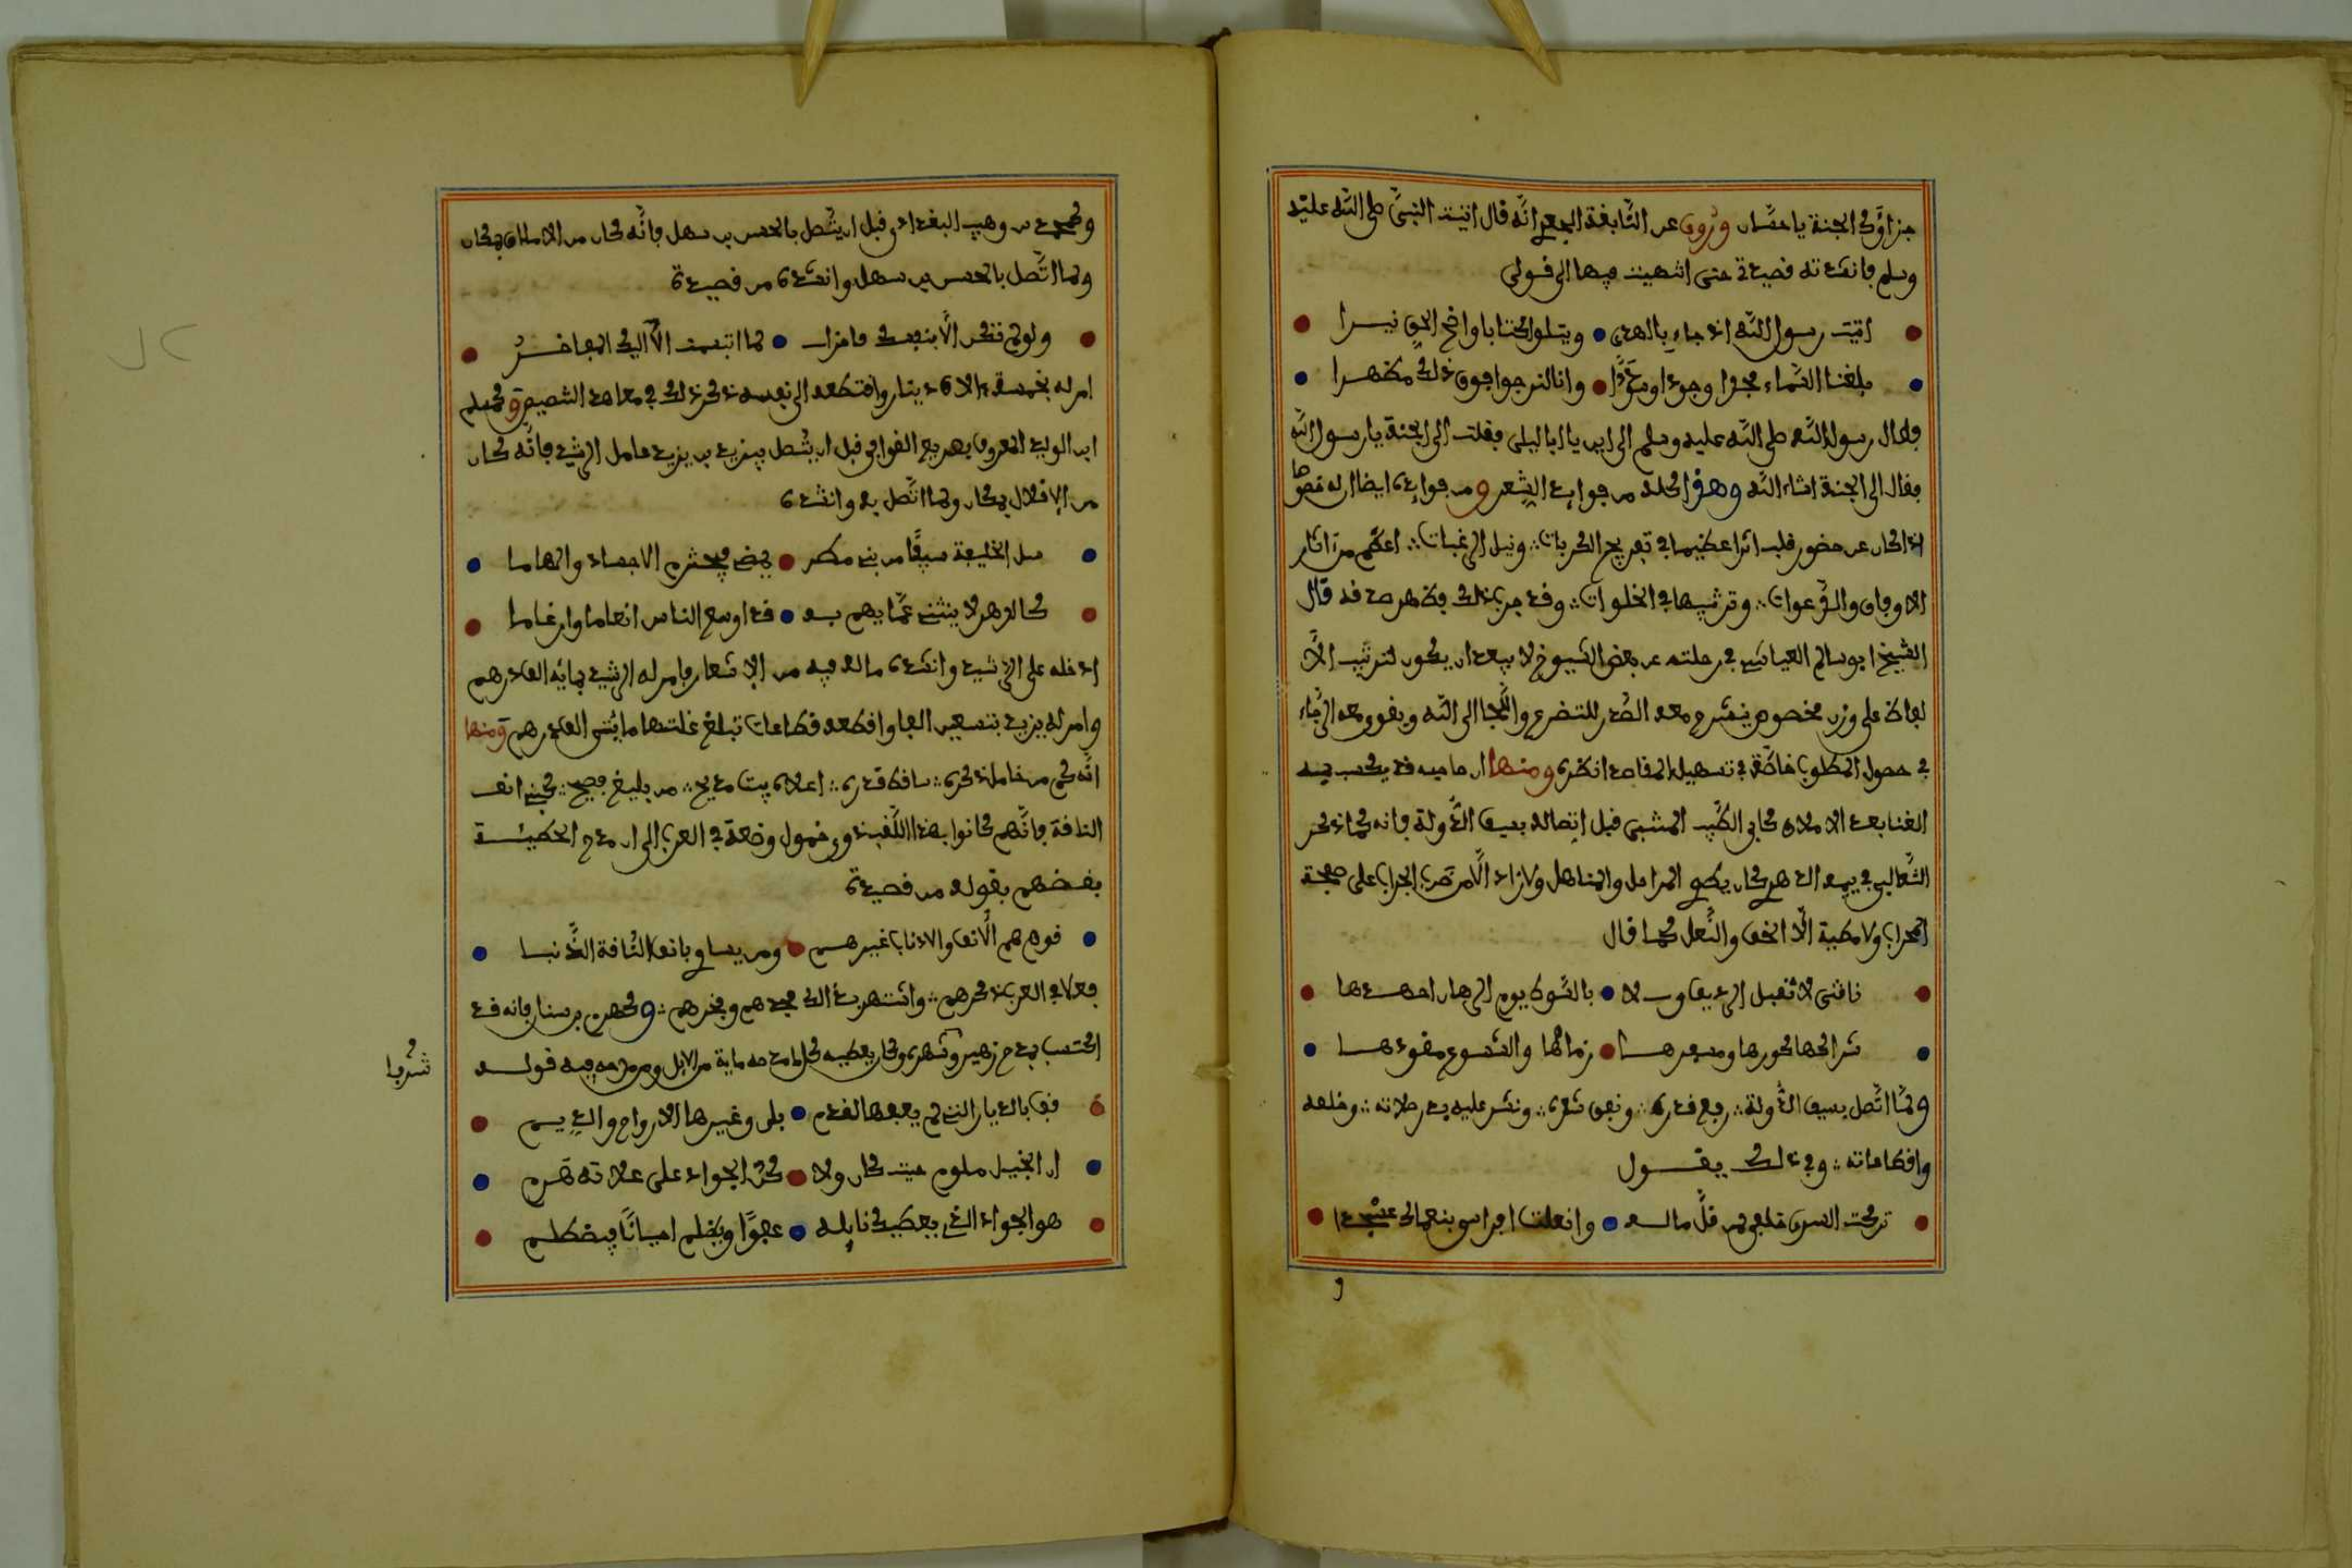 جزاؤك الجنة يا حسّان وروي عن النّابغة الجعدي انّه قال اتيت النبيّ صلى اللّه عليه
وسلم فانشدته قصيدة حتى انتهيت فيها الى قولي
اتيت رسول اللّه اذ جاء بالهدى • ويتلوا كتابا واضح الحق نيرا
بلغنا السّماء مجدا وجودا وسؤددا • وانا لنرجوا فوق ذلك مظهرا
فقال رسول اللّه صلى اللّه عليه وسلم الى اين يا ابا ليلى فقلت الى الجنة يا رسول اللّه
فقال الى الجنة ان شاء اللّه وهذا كله من فوايد الشعر ومن فوايده ايضا ان له خصوصا
اذا كان عن حضور قلب اثرا عظيما في تفريج الكربات ونيل الرغبات اعظم من آثار
الاوفاق والدّعوات وترتيبها في الخلوات وقد جرب ذلك فظهر صدقه قال
الشيخ ابو سالم العياشي في رحلته عن بعض الشيوخ لا يبعد ان يكون لترتيب الا
لفاظ على وزن مخصوص ينشرح معه الصّدر للتضرع واللّجا الى اللّه ويقوى معه الرّجاء
في حصول المطلوب خاصّة في تسهيل المقاصد انظره ومنها ان صاحبه قد يكسب به
الغنا بعد الاملاق كابي الطّيب المتنبي قبل اتصاله بسيف الدّولة فانه كما ذكر
الثّعالبي في يتيمة الدهر كان يطوي المراحل والمناهل ولا زاد الّا من ضرب الحراب على صفحة
المحراب ولا مطية الّا الخف والنّعل كما قال
ناقتي لا تقبل الرديف ولا • بالسّوط يوم الرهان اجهدها
شراكها كورها ومشفرها • زمامها والشسوع مقودها
ولمّا اتّصل بسيف الدّولة رفع قدره ونفق شعره ونشر عليه بدر صلاته وخلعه
واقطاعاته وفي ذلك يقول
تركت السرى خلفي لمن قلّ ماله • وانعلت افراسي بنعماك عسجدا
و
ومحمد بن وهيب البغدادي قبل ان يتّصل بالحسن بن سهل فانّه كان من الاملاق بمكان
ولما اتّصل بالحسن بن سهل وانشده من قصيدة
ولو لم تفخر الّا بنفسك
امر له بخمسة آلاف دينار واقتطعه الى نفسه ذكر ذلك في معاهد التنصيص وكمسلم
ابن الوليد المعروف بصريع الغواني قبل ان يتّصل بيزيد بن يزيد عامل الرشيد فانّه كان
من الاقلال بمكان ولما اتّصل به وانشده
سل الخليفة سيفًا من بني مطر • يمضي فيخترم الاجساد والهاما
كالدهر لا ينثني عمّا يهم به • قد اوسع الناس انعاما وارغاما
ادخله على الرشيد وانشده ما له فيه من الاشعار فامر له الرشيد بمائة الف درهم
وامر له يزيد بتسعين الفا واقطعه قطاعات تبلغ غلتها مائتي الف درهم ومنها
انّه كم من خامل ذكره ساقط قدره اعلاه بيت مديح من بليغ فصيح كبني انف
الناقة فانّهم كانوا بهذا اللّقب ذوي خمول وضعة في العرب الى ان مدح الحطيئة
بعضهم بقوله من قصيدة
قوم هم الأنف والاذناب غيرهم • ومن يساوي بانف النّاقة الذّنبا
فعلا في العرب ذكرهم واشتهر بذلك مجدهم وفخرهم وكهرم بن سنان فانه قد
اكتسب بمدح زهير وشهره وكان يعطيه كلما مدحه مائة من الابل ومن مدحه فيه قوله
شرفا
قف بالديار التي لم يعفها القدم • بلى وغيرها الارواح والديم
ان البخيل ملوم حيث كان ولا • كنّ الجواد على علاته هرم
هو الجواد الذي يعطيك نايله • عفوًا ويظلم احيانًا فيظطلم